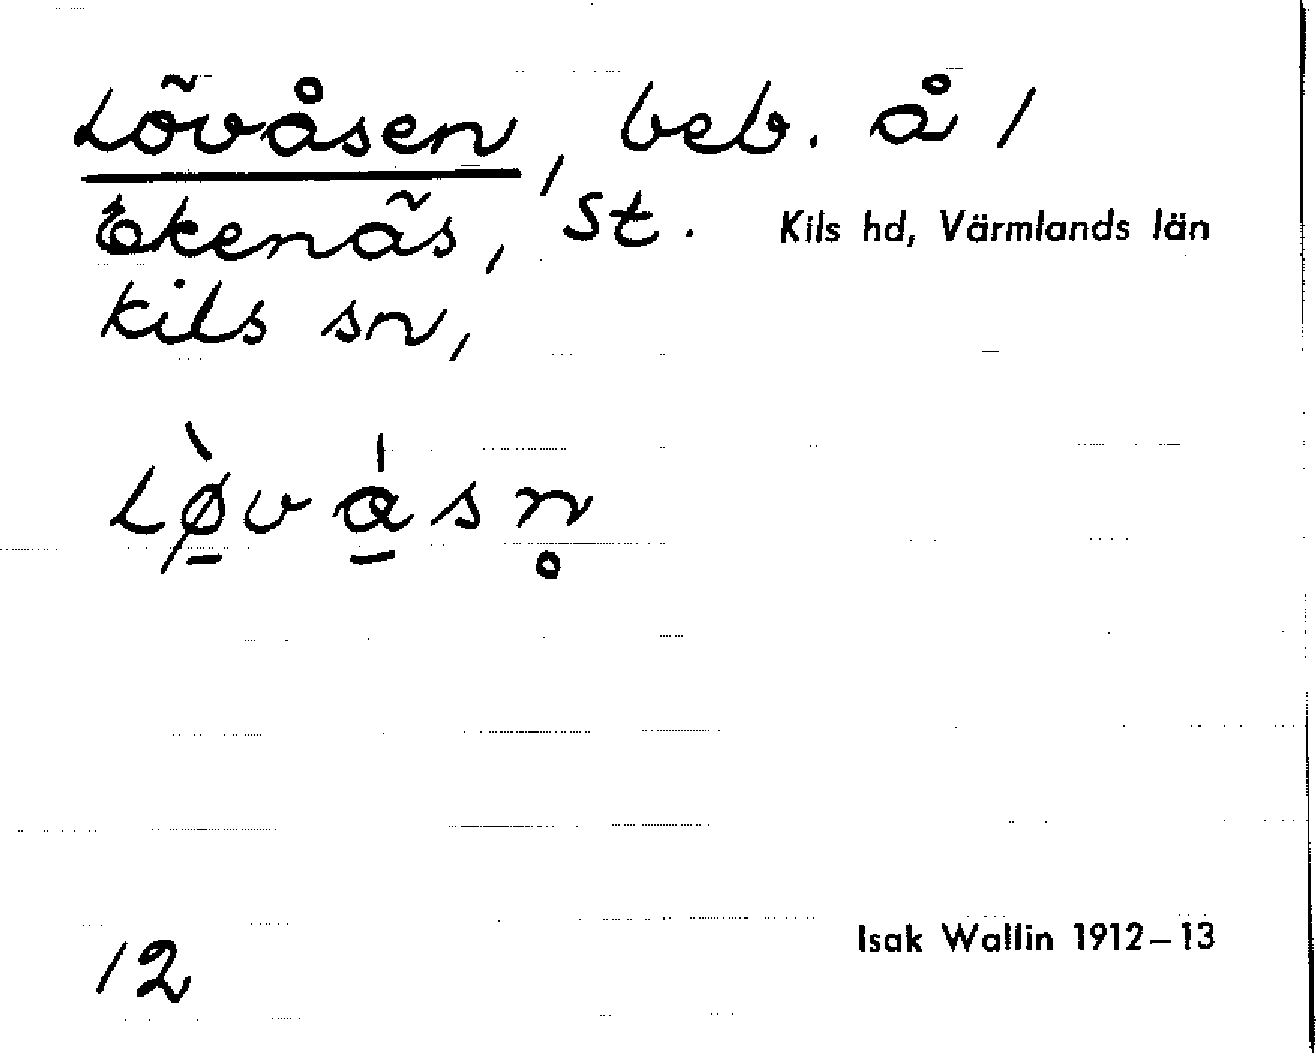 Lövåsen, beb. å 1
Ekenäs, St. Kils hd, Värmlands län
Kils sn,
Lø̱̀vå̱sn̥
12
Isak Wallin 1912–13